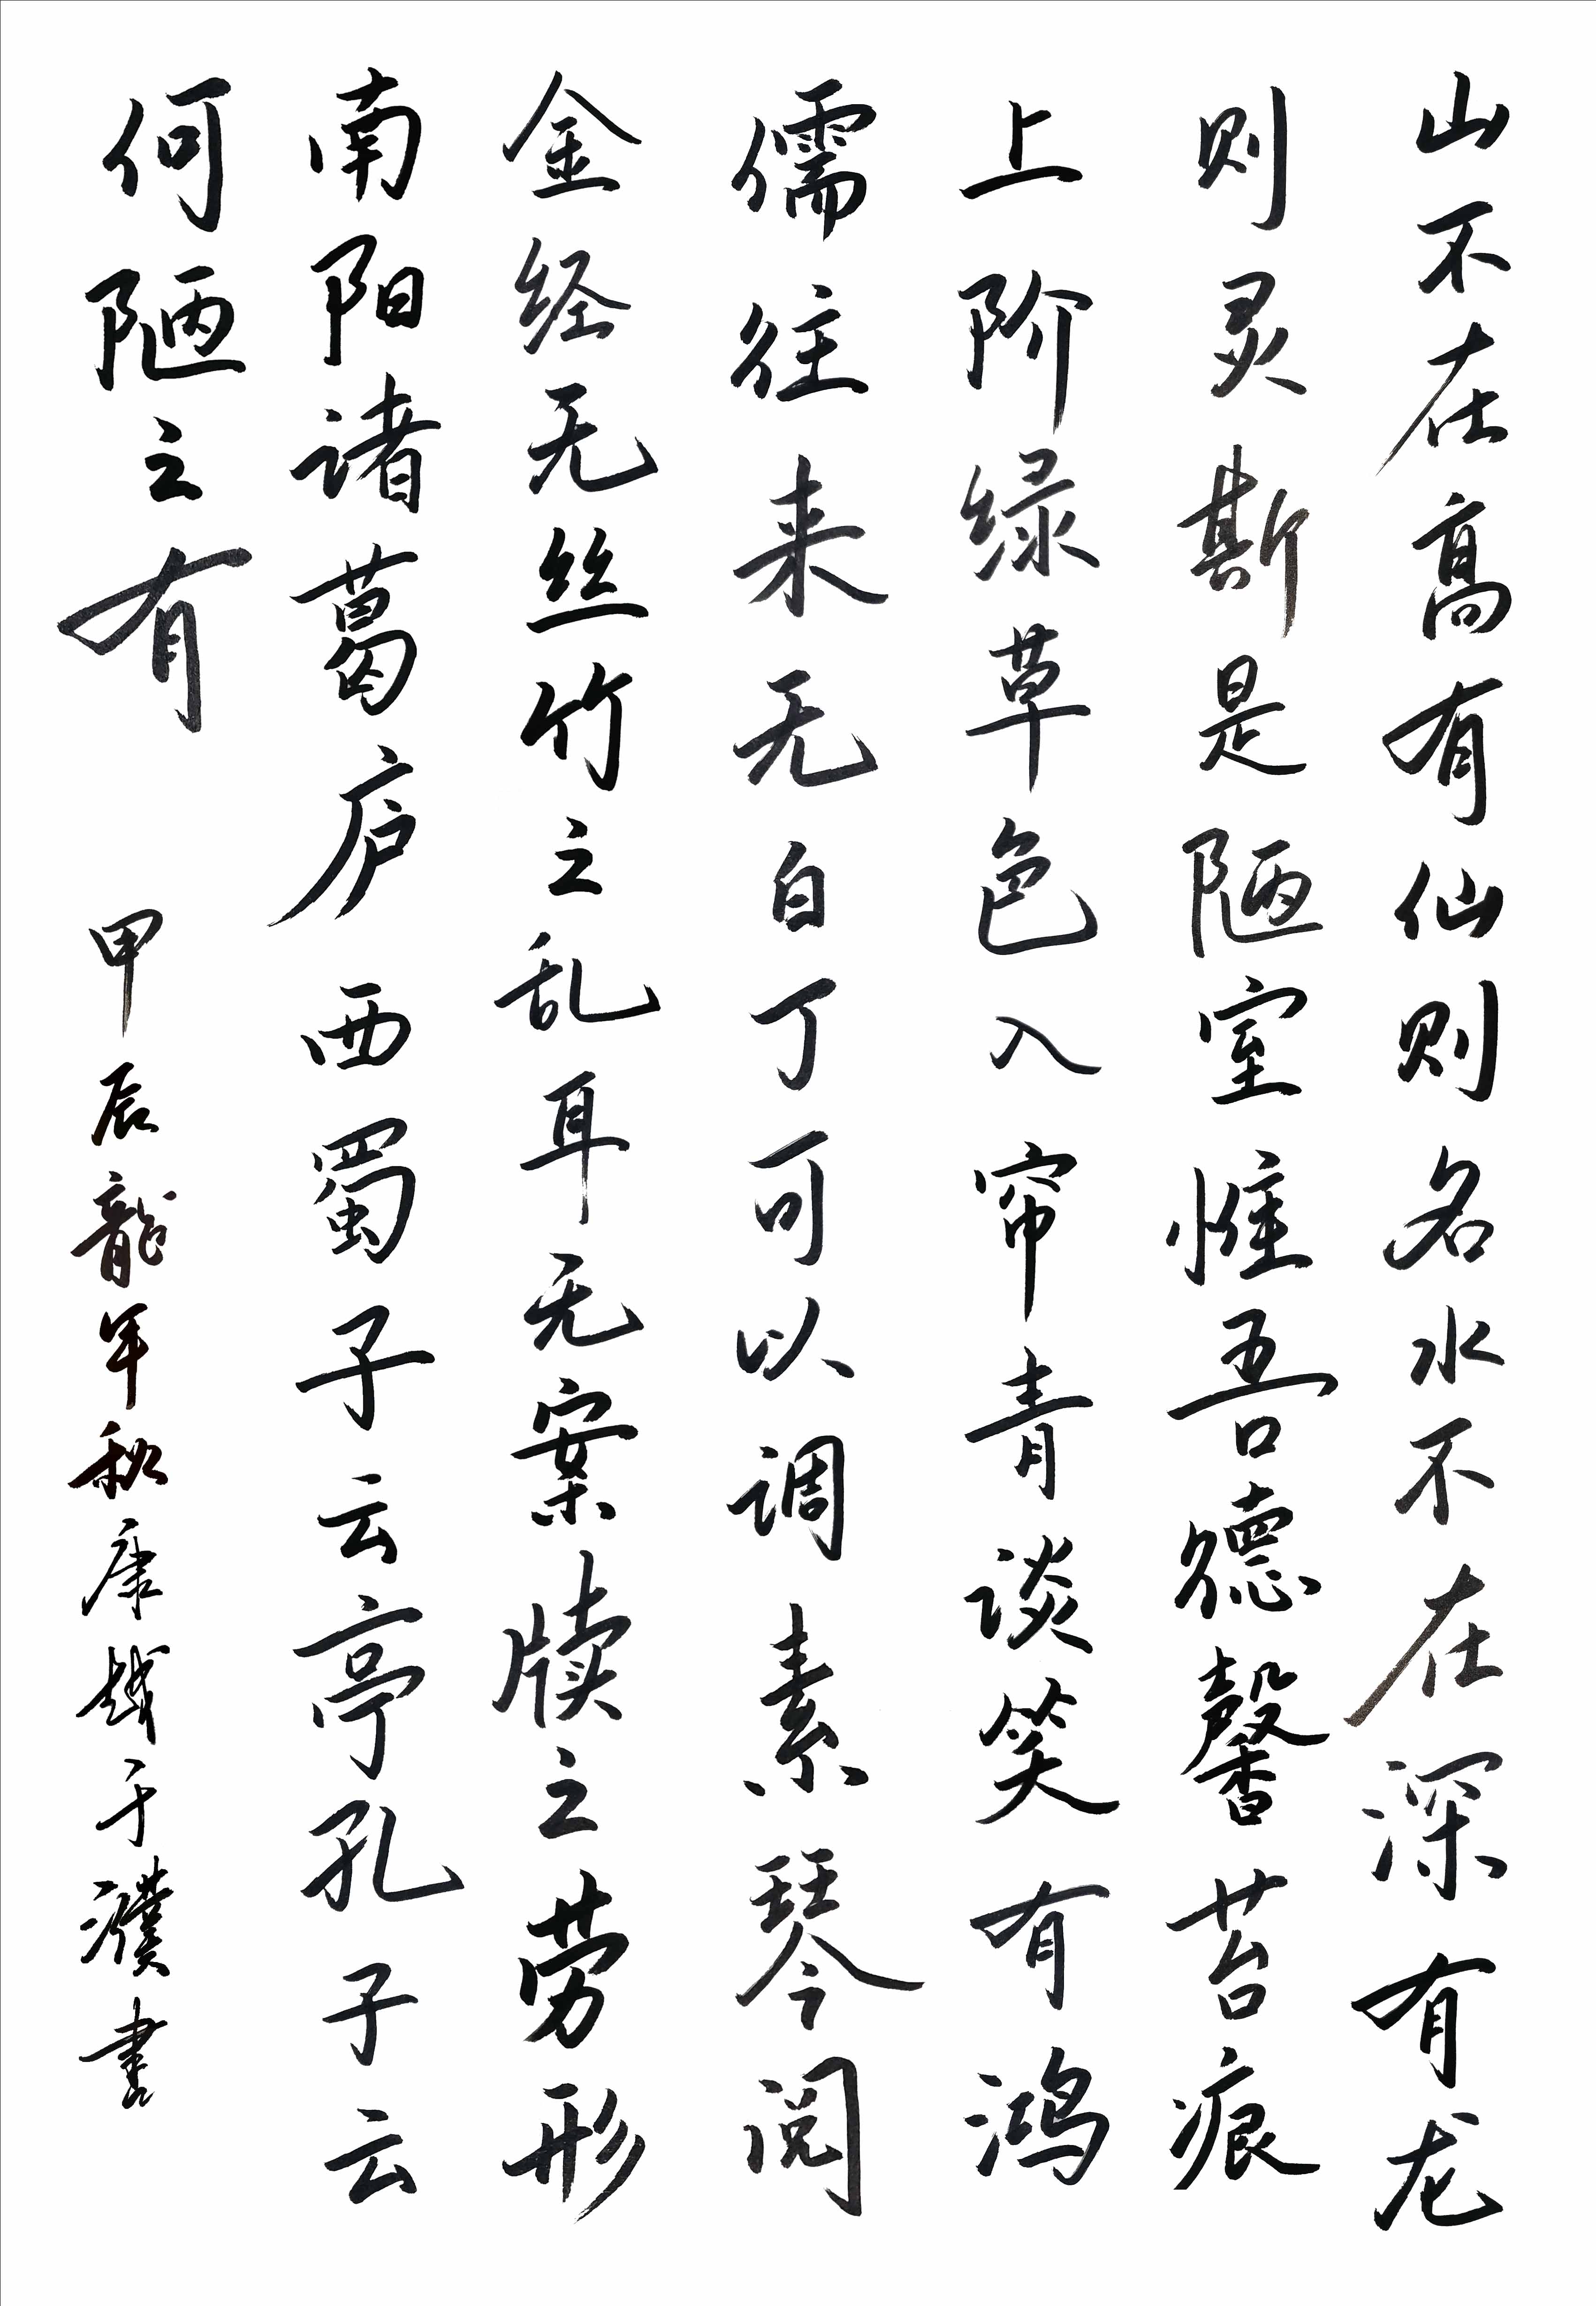 山不在高有仙则名水不在深有龙
则灵斯是陋室惟吾德馨苔痕
上阶绿草色入帘青谈笑有鸿
儒往来无白丁可以调素琴阅
金经无丝竹之乱耳无案牍之劳形
南阳诸葛庐西蜀子云亭孔子云
何陋之有
甲辰龍年秋康越于濮書